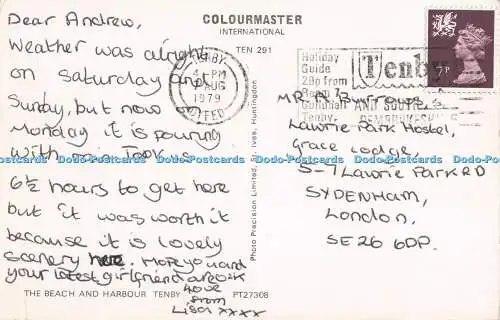 Dear Andrew,
Weather was alright
on Saturday and
Sunday, but now
Monday it is pouring
with rain. Took us
6½ hours to get here
but it was worth it
because it is lovely
scenery here. Hope you and
your latest girlfriend are O.K
Love
from
Lisa xxxx
COLOURMASTER
INTERNATIONAL
TEN 291
TENBY
PM
AUG
1979
DYFED
Holiday
Guide
28p from
Room
Guildhall
Tenby
Tenby
AND SOUTH
PEMBROKESHIRE
P
MR A
Lawrie Park Hostel,
Grace Lodge,
5-7 Lawrie Park RD
SYDENHAM,
London.
SE26 6DP.
Photo Precision Limited, St. Ives, Huntingdon
THE BEACH AND HARBOUR TENBY
PT27308
Postcards Discovery Postcards Discovery Postcards Discovery